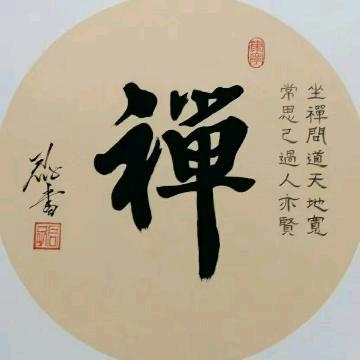 坐禪問道天地寬
常思己過人亦賢
禪